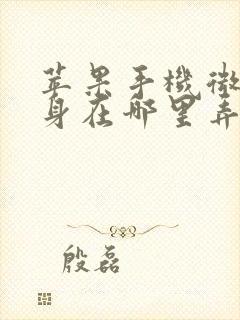 苹果手機微
身在哪里弄
殷磊